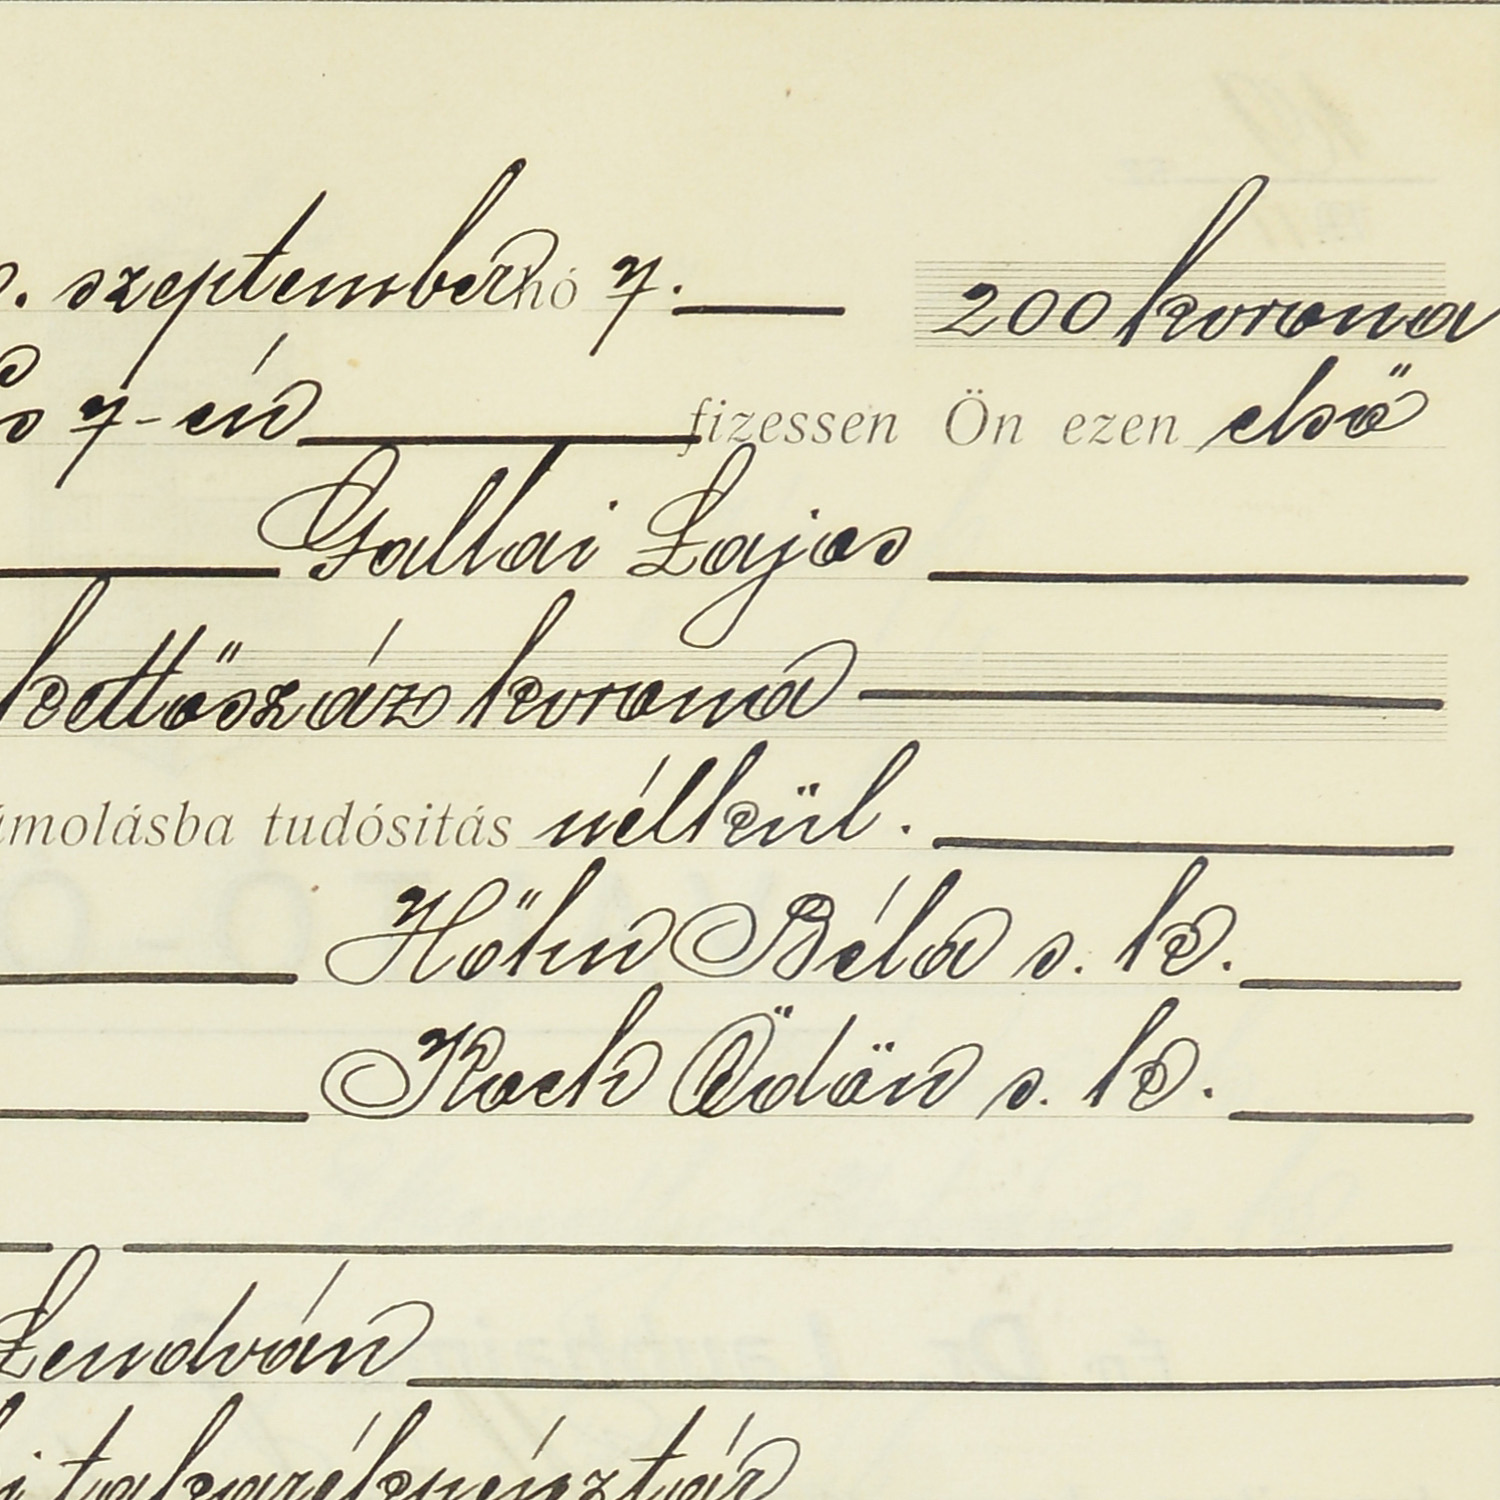 . szeptember hó 7. 200 korona
7-én fizessen Ön ezen első
Gallai Lajos
kettőszáz korona
ámolásba tudósitás nélkül.
Höhn Béla s. k.
Koch Ödön s. k.
Lendván
i takarékpénztár